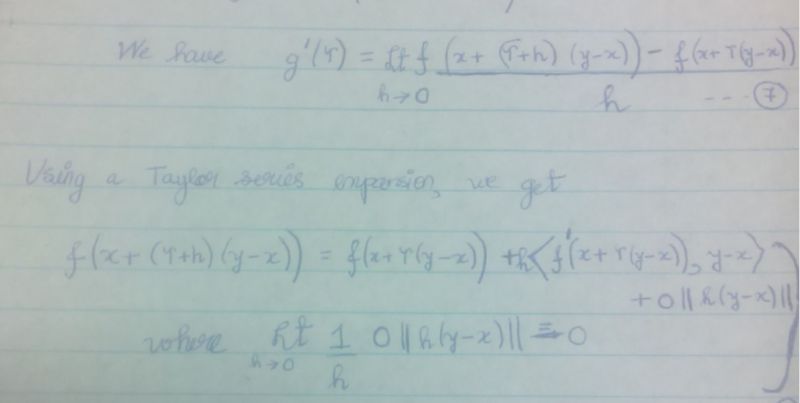 We have g'(τ) = Lt f (x + (τ+h) (y-x)) - f(x+τ(y-x))
h→0 h --- ⑦
Using a Taylor series expansion, we get
f(x + (τ+h)(y-x)) = f(x+τ(y-x)) + h⟨f'(x+τ(y-x)), y-x⟩
+ o||h(y-x)||
where Lt 1 o||h(y-x)|| = 0
h→0 h